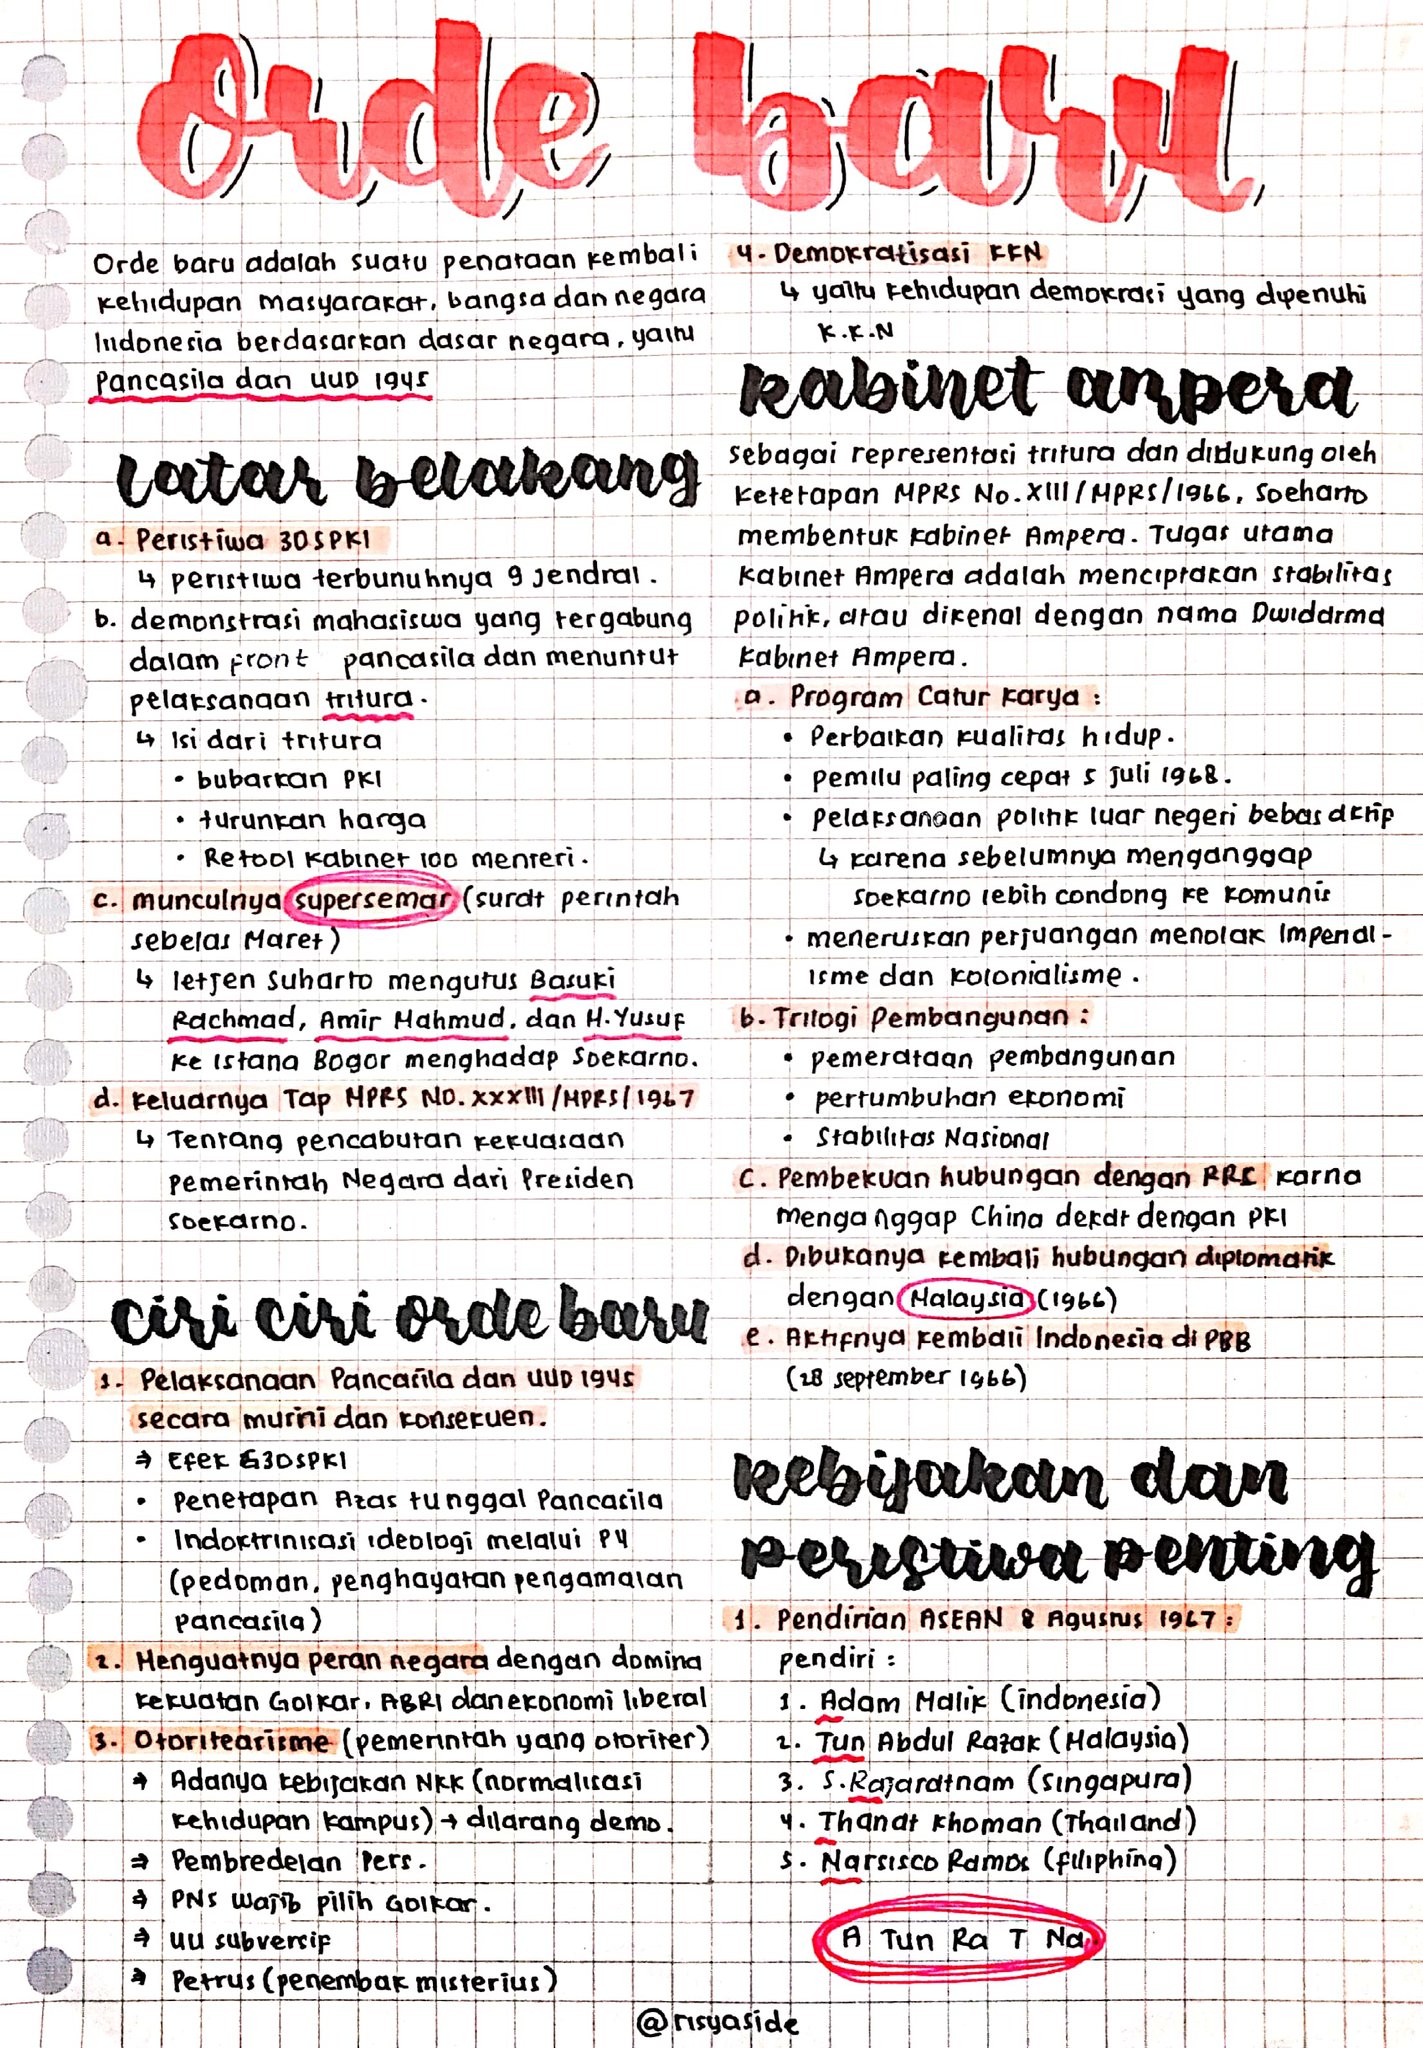 Orde baru
Orde baru adalah suatu penataan kembali
kehidupan masyarakat, bangsa dan negara
Indonesia berdasarkan dasar negara, yaitu
Pancasila dan UUD 1945
latar belakang
a. Peristiwa 30SPKI
↳ peristiwa terbunuhnya 9 jendral.
b. demonstrasi mahasiswa yang tergabung
dalam front pancasila dan menuntut
pelaksanaan tritura.
↳ Isi dari tritura
• bubarkan PKI
• turunkan harga
• Retool kabinet 100 menteri.
c. munculnya supersemar (surat perintah
sebelas Maret)
↳ letjen Suharto mengutus Basuki
Rachmad, Amir Mahmud, dan H. Yusuf
ke istana Bogor menghadap Soekarno.
d. keluarnya Tap MPRS NO. XXXIII/MPRS/1967
↳ Tentang pencabutan kekuasaan
pemerintah Negara dari Presiden
Soekarno.
ciri ciri orde baru
1. Pelaksanaan Pancasila dan UUD 1945
secara murni dan konsekuen.
⇒ Efek G30SPKI
• Penetapan Azas tunggal Pancasila
• Indoktrinisasi ideologi melalui P4
(pedoman, penghayatan pengamalan
pancasila)
2. Menguatnya peran negara dengan domina
kekuatan Golkar, ABRI dan ekonomi liberal
3. Otoritearisme (pemerintah yang otoriter)
⇒ Adanya kebijakan NKK (normalisasi
kehidupan kampus) → dilarang demo.
⇒ Pembredelan Pers.
⇒ PNS wajib pilih Golkar.
⇒ UU subversif
⇒ Petrus (penembak misterius)
4. Demokratisasi KKN
↳ yaitu kehidupan demokrasi yang dipenuhi
K.K.N
kabinet ampera
Sebagai representasi tritura dan didukung oleh
ketetapan MPRS No. XIII/MPRS/1966, Soeharto
membentuk kabinet Ampera. Tugas utama
kabinet Ampera adalah menciptakan stabilitas
politik, atau dikenal dengan nama Dwidarma
kabinet Ampera.
a. Program Catur karya :
• Perbaikan kualitas hidup.
• pemilu paling cepat 5 juli 1968.
• pelaksanaan politik luar negeri bebas aktif
↳ karena sebelumnya menganggap
soekarno lebih condong ke komunis
• meneruskan perjuangan menolak Imperial-
isme dan kolonialisme.
b. Trilogi Pembangunan :
• pemerataan pembangunan
• pertumbuhan ekonomi
• Stabilitas Nasional
c. Pembekuan hubungan dengan RRC karna
menganggap China dekat dengan PKI
d. Dibukanya kembali hubungan diplomatik
dengan Malaysia (1966)
e. Aktifnya kembali Indonesia di PBB
(28 september 1966)
kebijakan dan
peristiwa penting
1. Pendirian ASEAN 8 Agustus 1967 :
pendiri :
1. Adam Malik (indonesia)
2. Tun Abdul Razak (Malaysia)
3. S. Rajaratnam (singapura)
4. Thanat khoman (Thailand)
5. Narsisco Ramos (filiphina)
A Tun Ra T Na
@risyaside